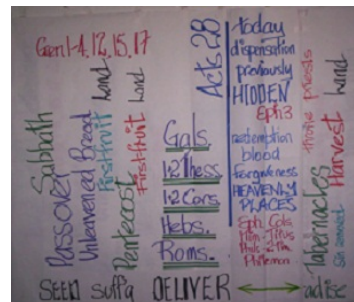 Gen 1-4, 12, 15, 17
Sabbath
Passover
Unleavened Bread
First-fruit Land
Pentecost
First-fruit Land
Gals.
1-2 Thess
1-2 Cors.
Hebs.
Roms.
Acts 28
today
dispensation
previously
HIDDEN
Eph 3
redemption
blood
forgiveness
HEAVENLY
PLACES
Cols
Titus
Philemon
priests
Tabernacles
Harvest Land
SEED
DELIVER